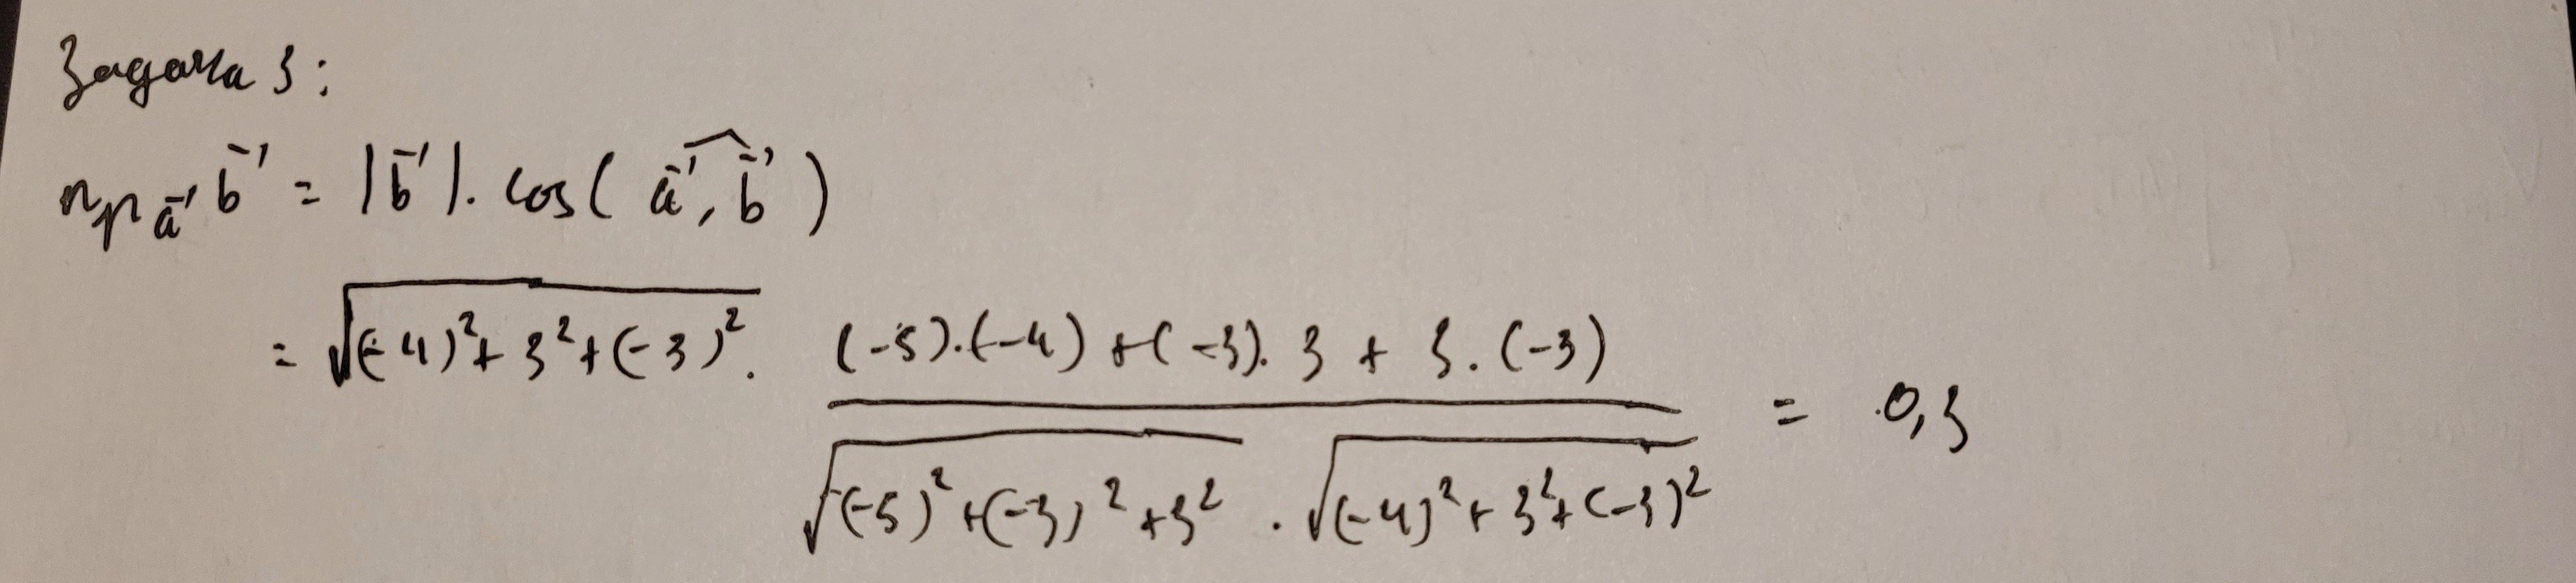 Задача 3:
пр_{\vec{a}} \vec{b} = |\vec{b}| . cos(\widehat{\vec{a}, \vec{b}})
= \sqrt{(-4)^2 + 3^2 + (-3)^2} . \frac{(-5).(-4) + (-3).3 + 3.(-3)}{\sqrt{(-5)^2 + (-3)^2 + 3^2} . \sqrt{(-4)^2 + 3^2 + (-3)^2}} = 0,3